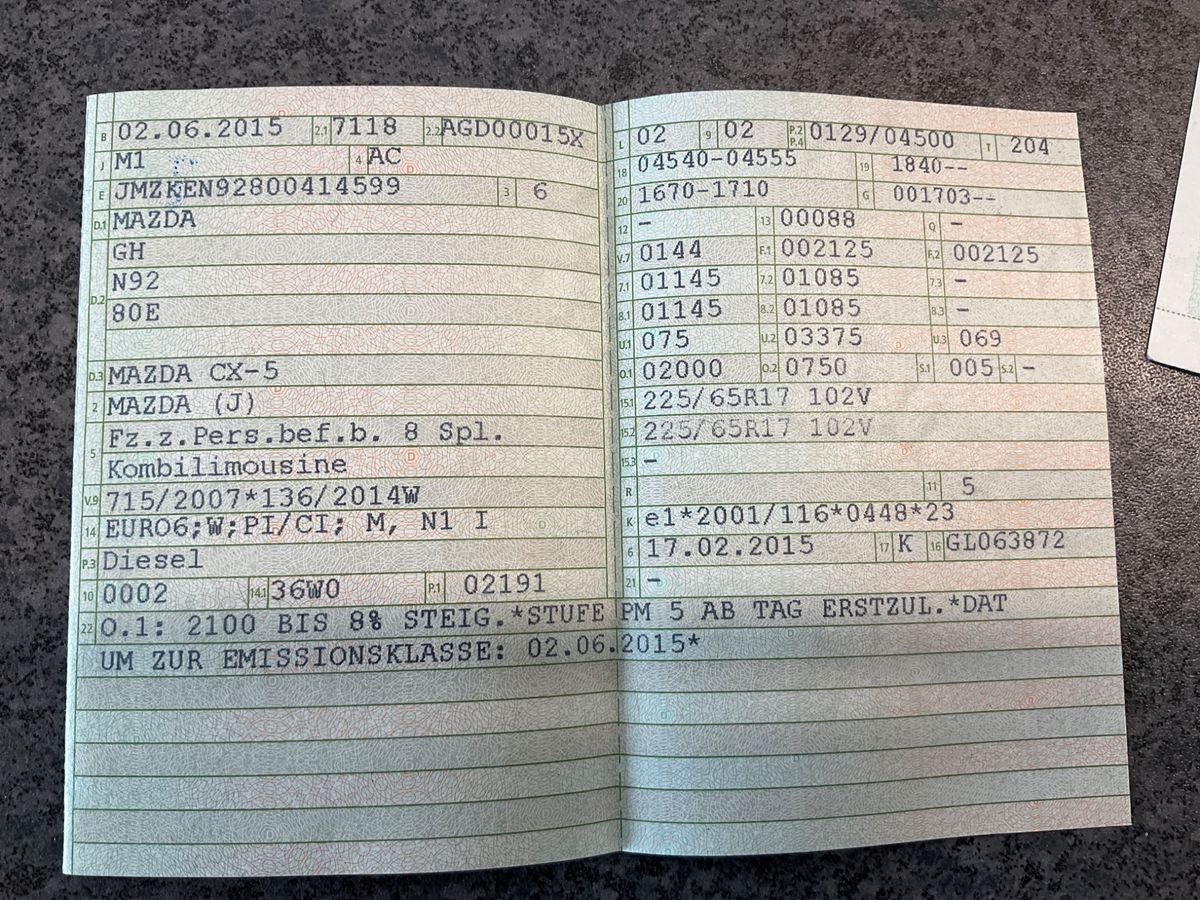 B 02.06.2015 2.1 7118 2.2 AGD00015X
J M1 4 AC
E JMZKEN92800414599 3 6
D.1 MAZDA
GH
D.2 N92
80E
D.3 MAZDA CX-5
2 MAZDA (J)
5 Fz.z.Pers.bef.b. 8 Spl.
Kombilimousine
V.9 715/2007*136/2014W
14 EURO6;W;PI/CI; M, N1 I
P.3 Diesel
10 0002 14.1 36W0 P.1 02191
L 02 9 02 P.2 P.4 0129/04500 T 204
18 04540-04555 19 1840--
20 1670-1710 G 001703--
12 - 13 00088 Q -
V.7 0144 F.1 002125 F.2 002125
7.1 01145 7.2 01085 7.3 -
8.1 01145 8.2 01085 8.3 -
U.1 075 U.2 03375 U.3 069
O.1 02000 O.2 0750 S.1 005 S.2 -
15.1 225/65R17 102V
15.2 225/65R17 102V
15.3 -
R 11 5
K e1*2001/116*0448*23
6 17.02.2015 17 K 16 GL063872
21 -
22 O.1: 2100 BIS 8% STEIG.*STUFE PM 5 AB TAG ERSTZUL.*DAT
UM ZUR EMISSIONSKLASSE: 02.06.2015*